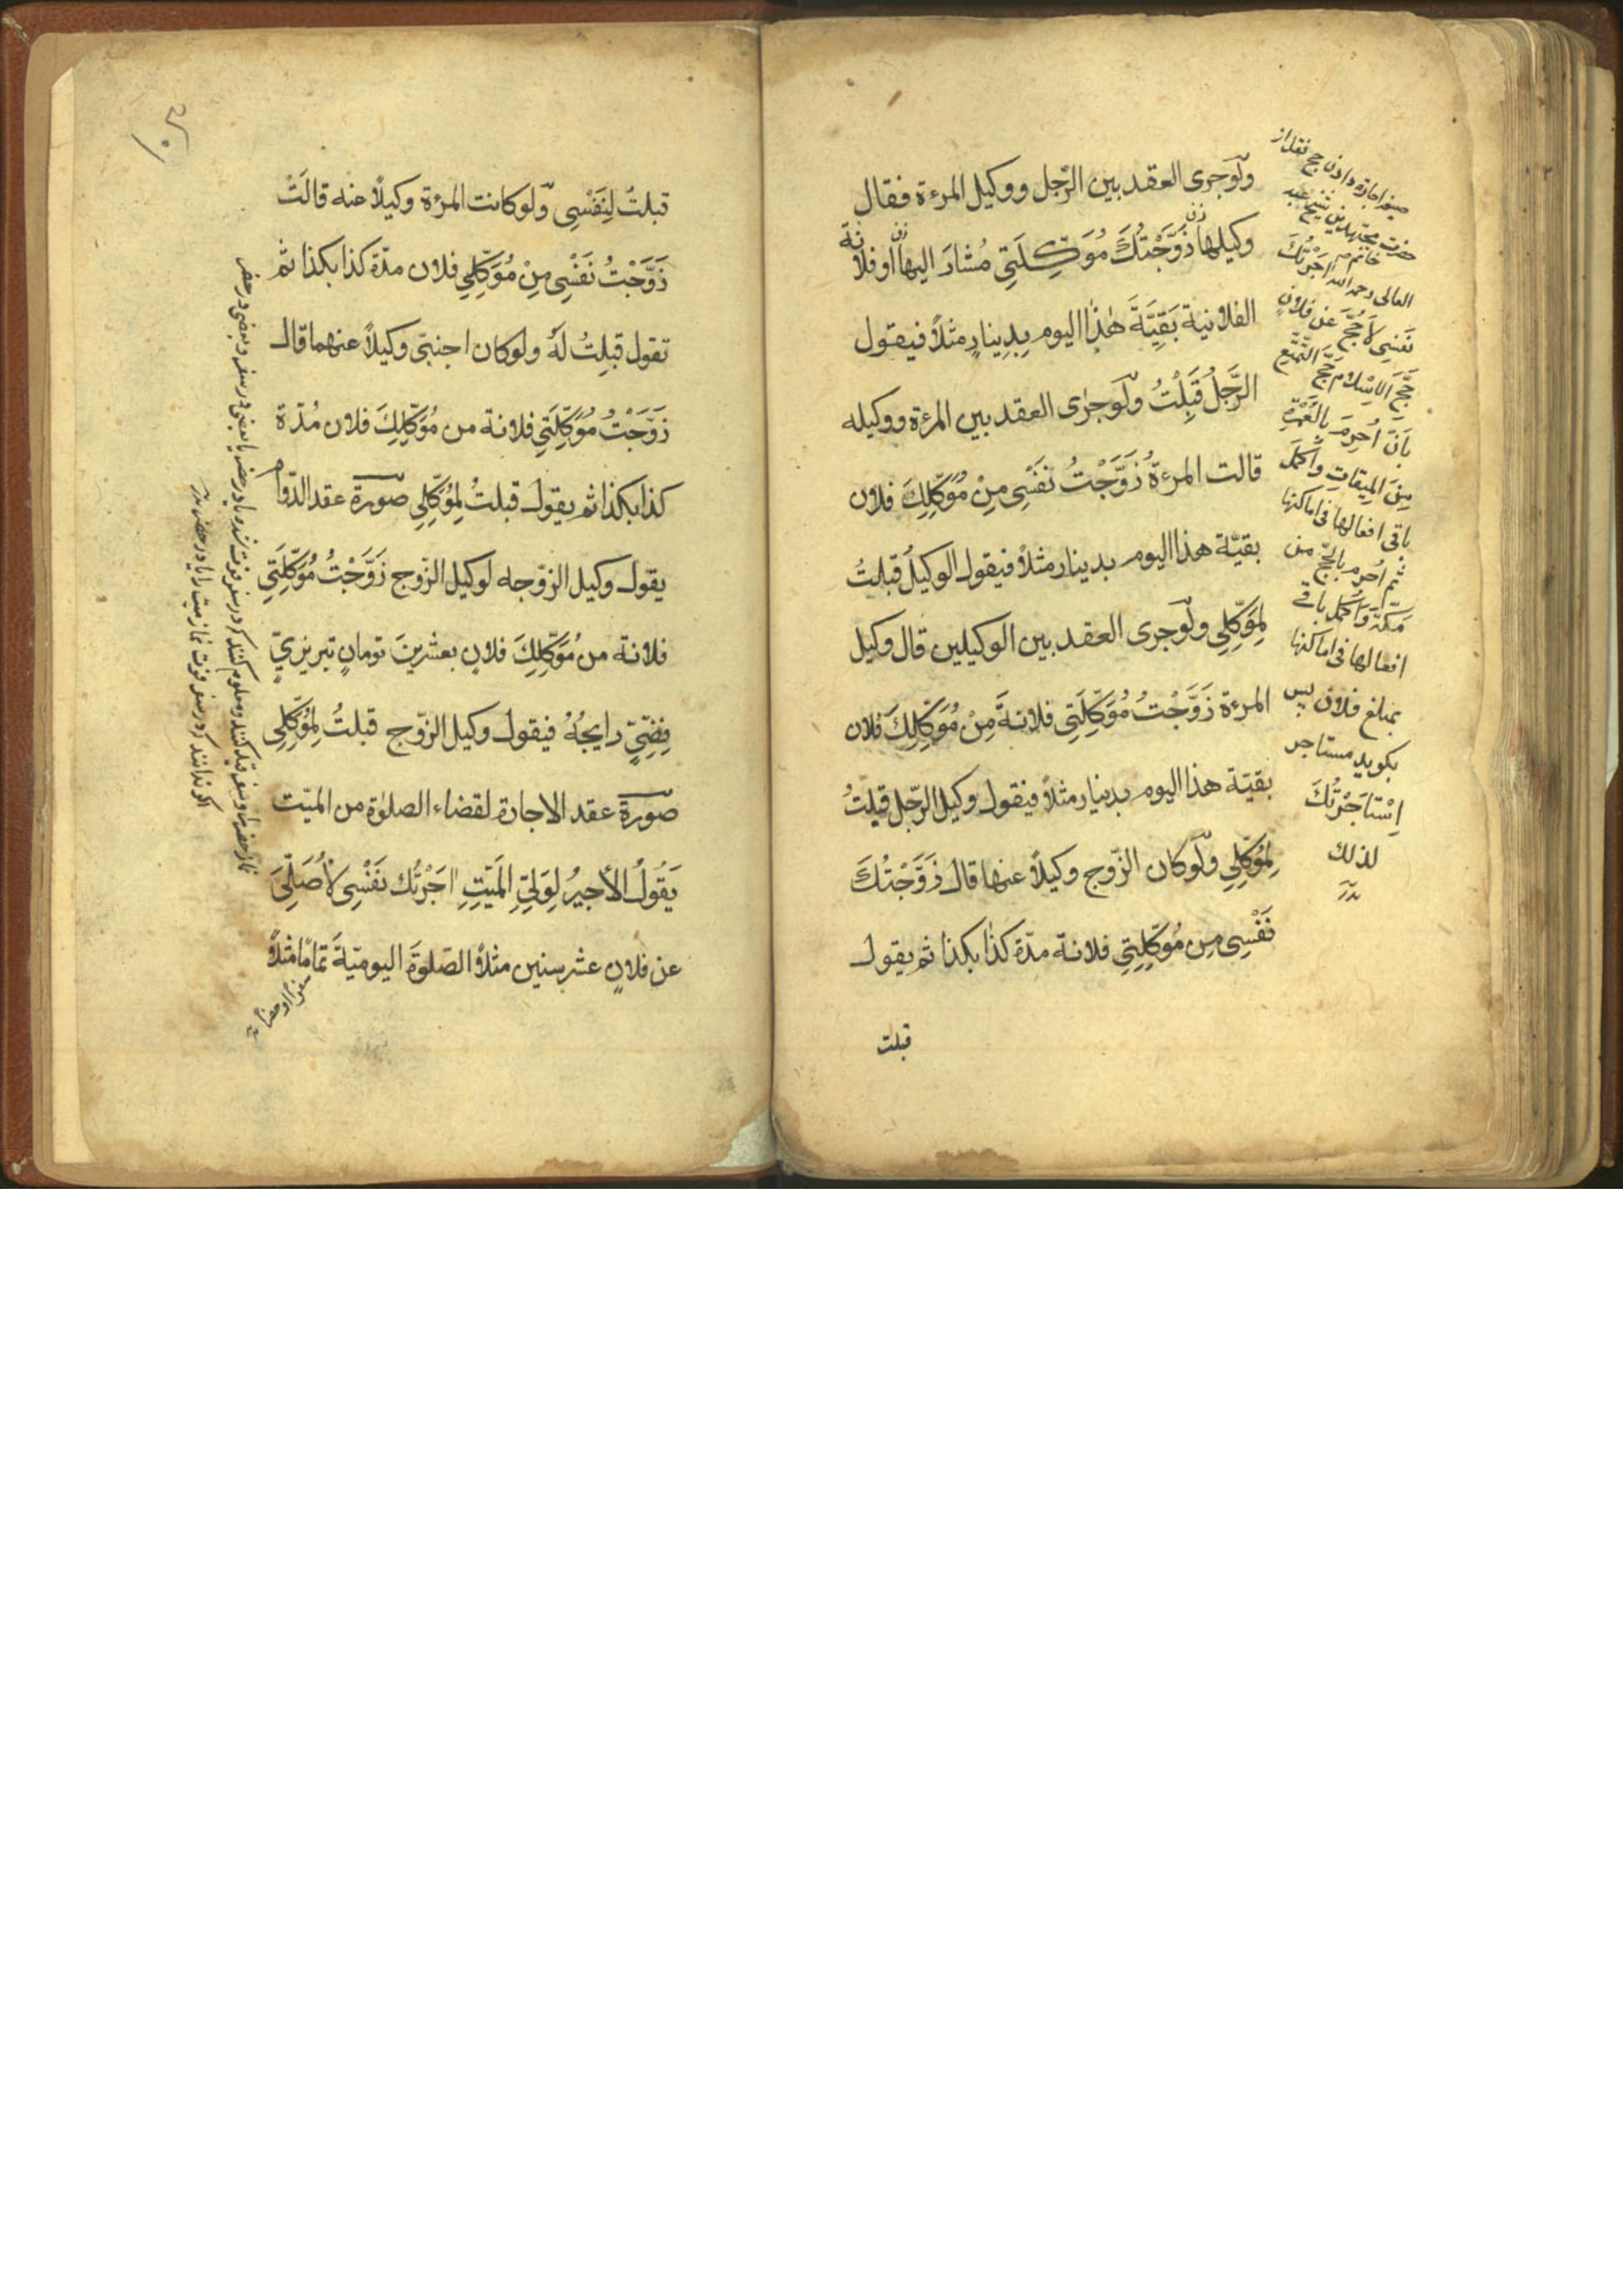 ولَوجرى العقد بين الرّجل ووكيل المرءة فقال
وكيلها زَوَّجْتُكَ مُوَكِّلَتِي مُشارَ اليها او فلانة
الفلانية بَقِيَّةَ هٰذا اليوم بِدِينارٍ مثلاً فيقول
الرَّجلُ قَبِلْتُ ولَوجرٰى العقد بين المرءة ووكيله
قالت المرءةُ زَوَّجْتُ نَفْسِى مِنْ مُوَكِّلِكَ فلان
بقيّة هذا اليوم بدينار مثلاً فيقول الوكيلُ قبلتُ
لِمُوَكِّلِي ولَوجرى العقد بين الوكيلين قال وكيل
المرءة زَوَّجْتُ مُوَكِّلَتِى فلانةَ مِنْ مُوَكِّلِكَ فلان
بقيّة هذا اليوم بدينار مثلاً فيقول وكيل الرّجل قبلتُ
لِمُوَكِّلِي ولَوكان الزّوج وكيلاً عنها قال زَوَّجْتُكَ
نَفْسِى مِن مُوَكِّلَتِي فلانة مدّة كذا بكذا ثم يقول
قبلت
صيغه اجازه دادن حج نقل از
حضرت مجتهد
العالى رحمه الله اٰجَرْتُكَ
نَفسِى لاَحُجَّ عَن فلانٍ
حَجَّ الاِسْلام حَجَّ التَّمَتُّع
بِاَنْ اُحْرِمَ بِالعُمْرَةِ
مِنَ المِيقاتِ وَاُكمِلَ
باقى افعالها فى اماكنها
ثم اُحْرِم بالحجّ من
مَكّةَ وَاُكمِل باقى
افعالها فى اماكنها
بمبلغ فلان پس
بكويد مستاجر
اِسْتَاجَرْتُكَ
لذلك
قبلتُ لِنَفْسِى ولَوكانت المرءة وكيلاً عنه قالَتْ
زَوَّجْتُ نَفْسِى مِنْ مُوَكِّلِي فلان مدّة كذا بكذا ثم
تقول قبلِتُ لهُ ولوكان اجنبّى وكيلاً عنهما قال
زَوَّجْتُ مُوَكِّلَتِي فلانة من مُوَكِّلِكَ فلان مُدّة
كذا بكذا ثم يقول قبلتُ لِمُوَكِّلِي صورة عقد الدّوام
يقول وكيل الزّوجه لوكيل الزّوج زَوَّجْتُ مُوَكِّلَتِي
فلانة من مُوَكِّلِكَ فلانٍ بعشرينَ تومانٍ تبريزيّ
فِضّيٍّ رايجُهُ فيقول وكيل الزّوج قبلتُ لِمُوَكِّلِى
صورة عقد الاجارة لقضاء الصلوٰة من الميّت
يَقُولُ الأجيرُ لِوَلِيّ المَيِّتِ اٰجَرْتُك نَفْسِى لأُصَلِّىَ
عن فلانٍ عشر سنين مثلاً الصّلوٰةَ اليوميّةَ تمامًا مثلاً